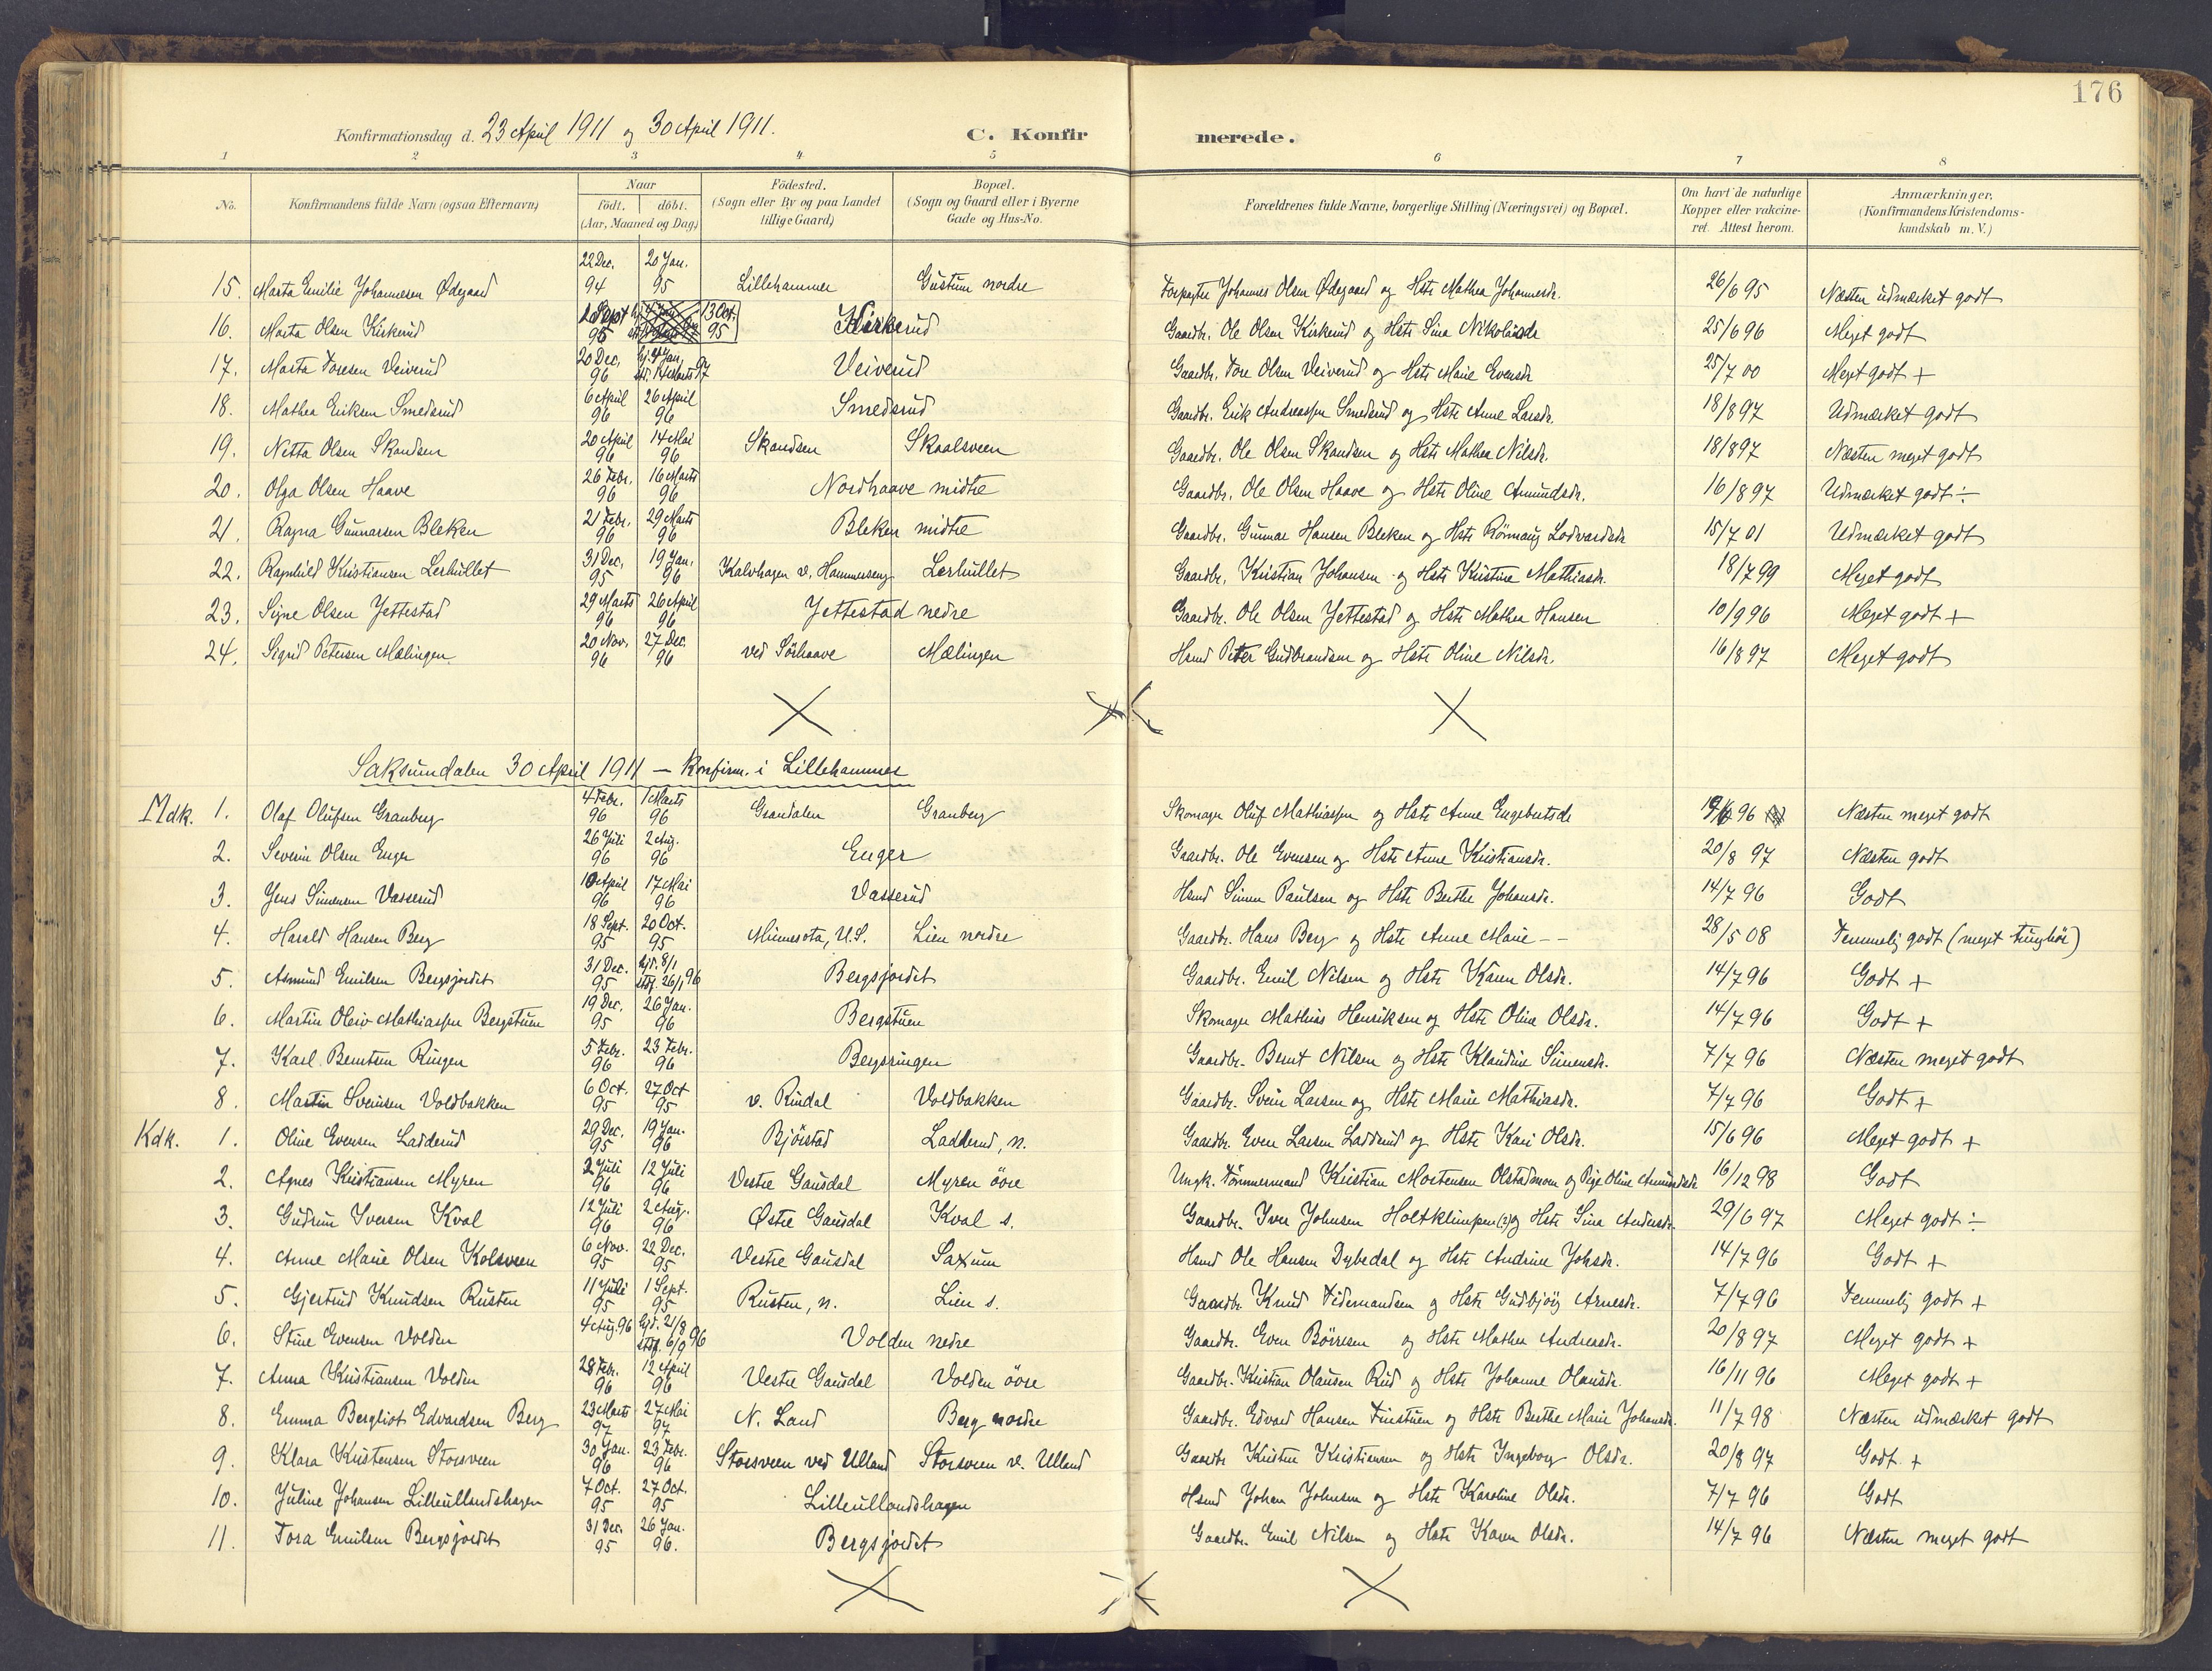 176
Konfirmationsdag d. 23 April 1911 og 30 April 1911.
C. Konfirmerede.
1 2 3 4 5 6 7 8
No.
Konfirmandens fulde Navn (ogsaa Efternavn)
Naar
født. døbt.
(Aar, Maaned og Dag)
Födested.
(Sogn eller By og paa Landet
tillige Gaard)
Bopæl.
(Sogn og Gaard eller i Byerne
Gade og Hus-No.
Forældrenes fulde Navne, borgerlige Stilling (Næringsvei) og Bopæl.
Om havt de naturlige
Kopper eller vakcine-
ret. Attest herom.
Anmærkninger.
(Konfirmandens Kristendoms-
kundskab m. V.)
15. Marta Emilie Johannesen Ødegaard 22 Dec. 94 20 Jan. 95 Lillehammer Gustum nordre Forpagter Johannes Olsen Ødegaard og Hstr Mathea Johannesdr. 26/6 95 Næsten udmærket godt
16. Marta Olsen Kirkerud 2 Sept 95 13 Oct. 95 Kirkerud Gaardbr. Ole Olsen Kirkerud og Hstr Sina Nikolaisdr 25/6 96 Meget godt
17. Marta Toresen Veiverud 20 Dec. 96 hj. 4 Jan. 97 Veiverud Gaardbr. Tore Olsen Veiverud og Hstr Marie Evensdr 25/7 00 Meget godt +
18. Mathea Eriksen Smedsrud 6 April 96 26 April 96 Smedsrud Gaardbr. Erik Andreassen Smedsrud og Hstr Anne Larsdr. 18/8 97 Udmærket godt
19. Netta Olsen Skandsen 20 April 96 14 Mai 96 Skandsen Skaalsveen Gaardbr. Ole Olsen Skandsen og Hstr Mathea Nilsdr. 18/8 97 Næsten meget godt
20. Olga Olsen Haave 26 Febr. 96 16 Marts 96 Nordhaave midtre Gaardbr. Ole Olsen Haave og Hstr Oline Amundsdr. 16/8 97 Udmærket godt ÷
21. Ragna Gunnarsen Bleken 21 Febr. 96 29 Marts 96 Bleken midtre Gaardbr. Gunnar Hansen Bleken og Hstr Rönnaug Lodvardsdr 15/7 01 Udmærket godt
22. Ragnhild Kristiansen Lerhullet 31 Dec. 95 19 Jan. 96 Kalvhagen v. Hammerseng Lerhullet Gaardbr. Kristian Johansen og Hstr Kristine Mathiasdr. 18/7 99 Meget godt
23. Signe Olsen Jettestad 29 Marts 96 26 April 96 Jettestad nedre Gaardbr. Ole Olsen Jettestad og Hstr Mathea Hansen 10/9 96 Meget godt +
24. Sigrid Petersen Mælingen 20 Nov. 96 27 Dec. 96 ved Sörhaave Mælingen Hsmd Peter Gudbrandsen og Hstr Oline Nilsdr. 16/8 97 Meget godt
Saksumdalen 30 April 1911 — Konfirm. i Lillehammer
Mdk. 1. Olaf Olufsen Granberg 4 Febr. 96 1 Marts 96 Grandalen Granberg Skomager Oluf Mathiassen og Hstr Anne Engebretsdr 96 Næsten meget godt
2. Severin Olsen Enger 26 Juli 96 2 Aug. 96 Enger Gaardbr. Ole Evensen og Hstr Anne Kristiansdr. 20/8 97 Næsten godt
3. Jens Simensen Vasserud 10 April 96 17 Mai 96 Vasserud Hsmd Simen Paulsen og Hstr Berthe Johansdr. 14/7 96 Godt
4. Harald Hansen Berg 18 Sept. 95 20 Oct. 95 Minnesota, U.S. Lien nordre Gaardbr. Hans Berg og Hstr Anne Marie – – 28/5 08 Temmelig godt (meget tunghör)
5. Asmund Emilsen Bergsjordet 31 Dec. 95 hjd. 8/1 stdf. 26/1 96 Bergsjordet Gaardbr. Emil Nilsen og Hstr Karen Olsdr. 14/7 96 Godt +
6. Martin Oleiv Mathiassen Bergstuen 19 Dec. 95 26 Jan. 96 Bergstuen Skomager Mathias Henriksen og Hstr Oline Olsdr. 14/7 96 Godt +
7. Karl Berntsen Ringen 5 Febr. 96 23 Febr. 96 Bergsringen Gaardbr. Bernt Nilsen og Hstr Klaudine Simensdr. 7/7 96 Næsten meget godt
8. Martin Sveinsen Voldbakken 6 Oct. 95 27 Oct 95 v. Rindal Voldbakken Gaardbr. Svein Larsen og Hstr Marie Mathiasdr. 7/7 96 Godt +
Kdk. 1. Oline Evensen Ladderud 29 Dec. 95 19 Jan. 96 Björstad Ladderud, n. Gaardbr. Even Larsen Ladderud og Hstr Kari Olsdr. 15/6 96 Meget godt +
2. Agnes Kristiansen Myren 2 Juli 96 12 Juli 96 Vestre Gausdal Myren övre Ungk. Tömmermand Kristian Mortensen Olstadmoen og Pige Oline Amundsdr 16/12 98 Godt
3. Gudrun Iversen Kval 12 Juli 96 2 Aug. 96 Østre Gausdal Kval s. Gaardbr. Iver Johnsen Holtklimpen (?) og Hstr Sina Andersdr. 29/6 97 Meget godt ÷
4. Anne Marie Olsen Kolsveen 6 Nov. 95 22 Dec. 95 Vestre Gausdal Saxum Hsmd Ole Hansen Dybedal og Hstr Andrine Johsdr. 14/7 96 Godt +
5. Gjertrud Knudsen Rusten 11 Juli 95 1 Sept. 95 Rusten, n. Lien s. Gaardbr. Knud Tidemandsen og Hstr Gudbjörg Arnesdr. 7/7 96 Temmelig godt +
6. Stine Evensen Volden 4 Aug. 96 hjd. 21/8 stdf. 6/9 96 Volden nedre Gaardbr. Even Börresen og Hstr Mathea Andreasdr. 20/8 97 Meget godt +
7. Anna Kristiansen Volden 28 Febr. 96 12 April 96 Vestre Gausdal Volden övre Gaardbr. Kristian Olausen Rud og Hstr Johanne Olausdr. 16/11 96 Meget godt +
8. Emma Bergliot Edvardsen Berg 23 Marts 97 27 Mai 97 N. Land Berg nordre Gaardbr. Edvard Hansen Finstuen og Hstr Berthe Marie Johansdr. 11/7 98 Næsten udmærket godt
9. Klara Kristensen Storsveen 30 Jan. 96 23 Febr. 96 Storsveen ved Ulland Storsveen v. Ulland Gaardbr Kristen Kristiansen og Hstr Ingeborg Olsdr. 20/8 97 Godt +
10. Juline Johansen Lilleullandshagen 7 Oct. 95 27 Oct. 95 Lilleullandshagen Hsmd Johan Johnsen og Hstr Karoline Olsdr. 7/7 96 Godt
11. Tora Emilsen Bergsjordet 31 Dec. 95 26 Jan. 96. Bergsjordet Gaardbr. Emil Nilsen og Hstr Karen Olsdr. 14/7 96 Næsten meget godt